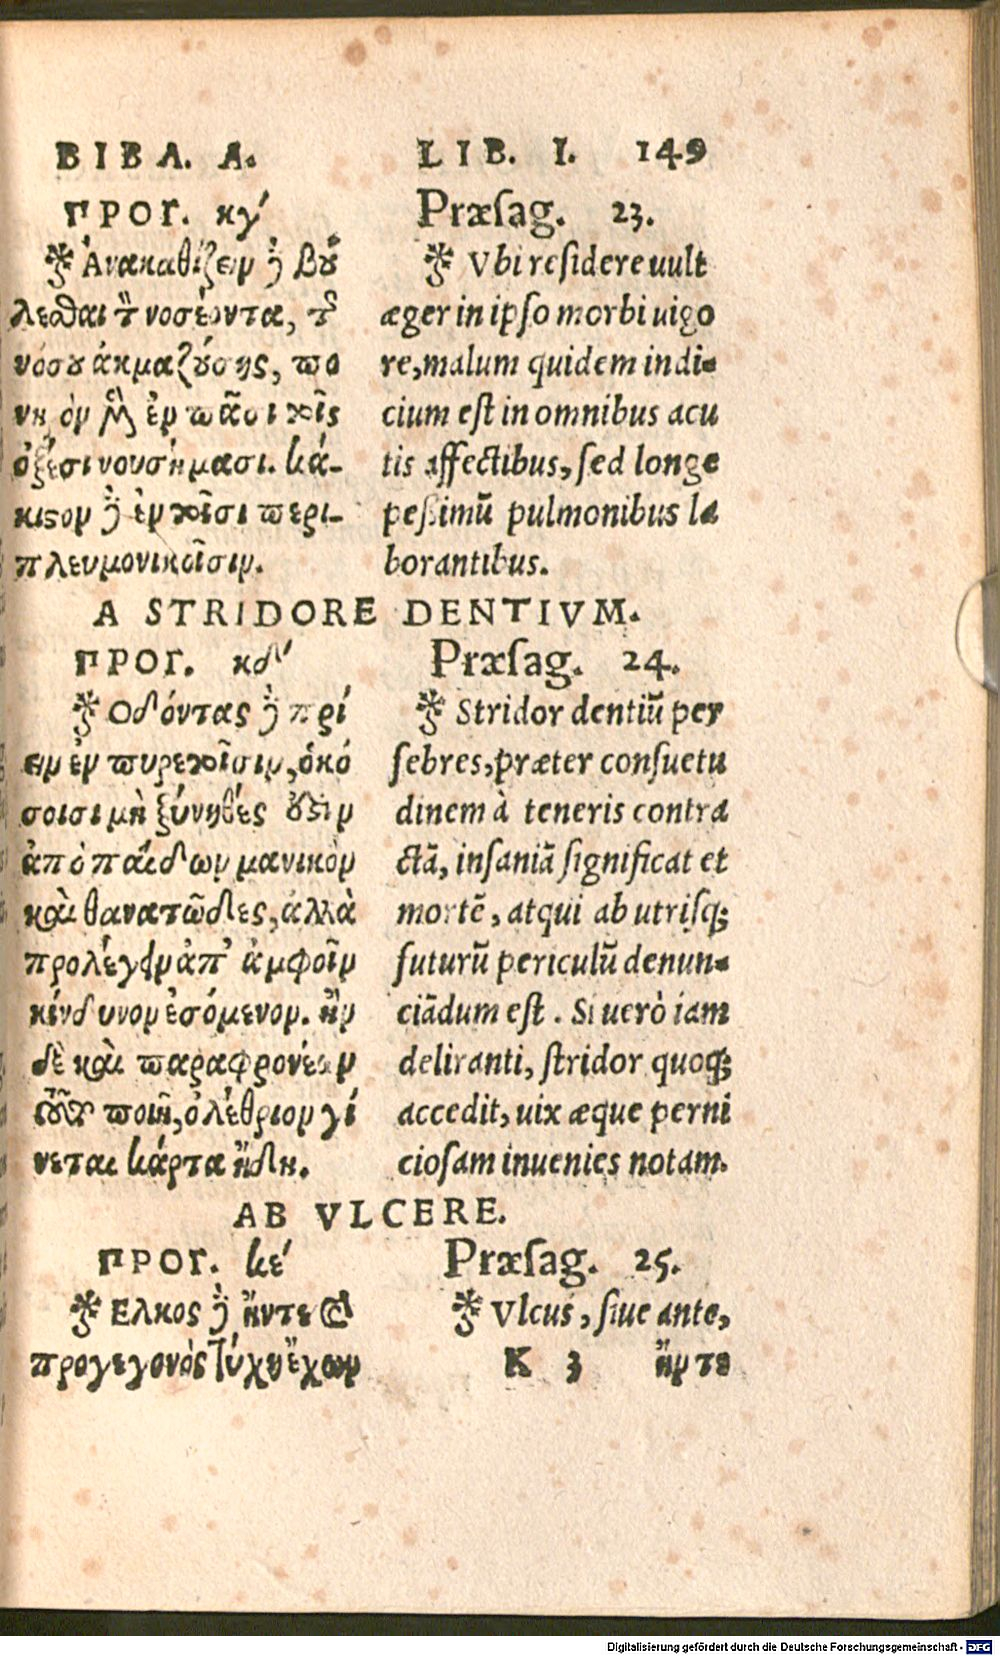 ΒΙΒΛ. Α.
ΠΡΟΓ. κγʹ
Ἀνακαθίζειν δὲ βού
λεσθαι τὸν νοσέοντα, τῆς
νόσου ἀκμαζούσης, πο
νηρὸν μὲν ἐν πᾶσι τοῖς
ὀξέσι νουσήμασι. κά-
κιστον δὲ ἐν τοῖσι περι-
πλευμονικοῖσιν.
LIB. I. 149
Præsag. 23.
Vbi residere uult
æger in ipso morbi uigo
re, malum quidem indi-
cium est in omnibus acu
tis affectibus, sed longe
pessimū pulmonibus la
borantibus.
A STRIDORE DENTIVM.
ΠΡΟΓ. κδʹ
Οδόντας δὲ πρί
ειν ἐν πυρετοῖσιν, ὁκό
σοισι μὴ ξύνηθές ἐστιν
ἀπὸ παίδων μανικὸν
καὶ θανατῶδες, ἀλλὰ
προλέγειν ἀπ' ἀμφοῖν
κίνδυνον ἐσόμενον. ἢν
δὲ καὶ παραφρονέων
τοῦτο ποιῆ, ὀλέθριον γί
νεται κάρτα ἤδη.
Præsag. 24.
Stridor dentiū per
febres, præter consuetu
dinem à teneris contra
ctā, insaniā significat et
mortē, atqui ab utrisq;
futurū periculū denun-
ciādum est. Si uerò iam
deliranti, stridor quoq;
accedit, uix æque perni
ciosam inuenies notam.
AB VLCERE.
ΠΡΟΓ. κεʹ
Ελκος δὲ ἤντε καὶ
προγεγονὸς τύχη ἔχων
Præsag. 25.
Vlcus, siue ante,
K 3 ἤν τε
Digitalisierung gefördert durch die Deutsche Forschungsgemeinschaft - DFG